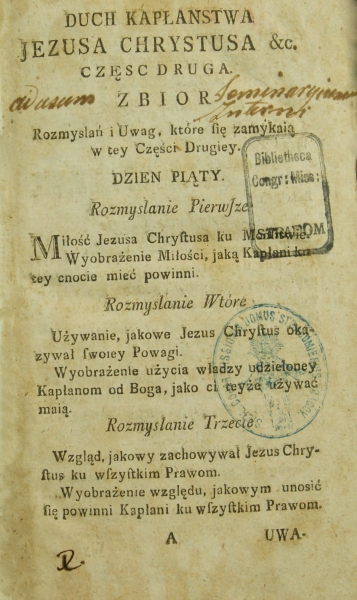 DUCH KAPŁANSTWA
JEZUSA CHRYSTUSA &c.
CZĘSC DRUGA.
ad usum Seminarij
ZBIOR Interni
Rozmyslań i Uwag, które ſię zamykaią
w tey Części Drugiey.
Bibliotheca
Congr: Miss:
STRADOM
DZIEN PIĄTY.
Rozmyslanie Pierwſze
Miłość Jezusa Chryſtusa ku
Wyobrażenie Miłości, jaką Kapłani ku
tey cnocie mieć powinni.
Rozmyslanie Wtóre
Używanie, jakowe Jezus Chryſtus oka-
zywał ſwoiey Powagi.
Wyobrażenie użycia władzy udzieloney
Kapłanom od Boga, jako ci teyże używać
maią.
Rozmyslanie Trzecie
Wzgląd, jakowy zachowywał Jezus Chry-
ſtus ku wſzyſtkim Prawom.
Wyobrażenie względu, jakowym unosić
ſię powinni Kapłani ku wſzyſtkim Prawom.
A UWA-